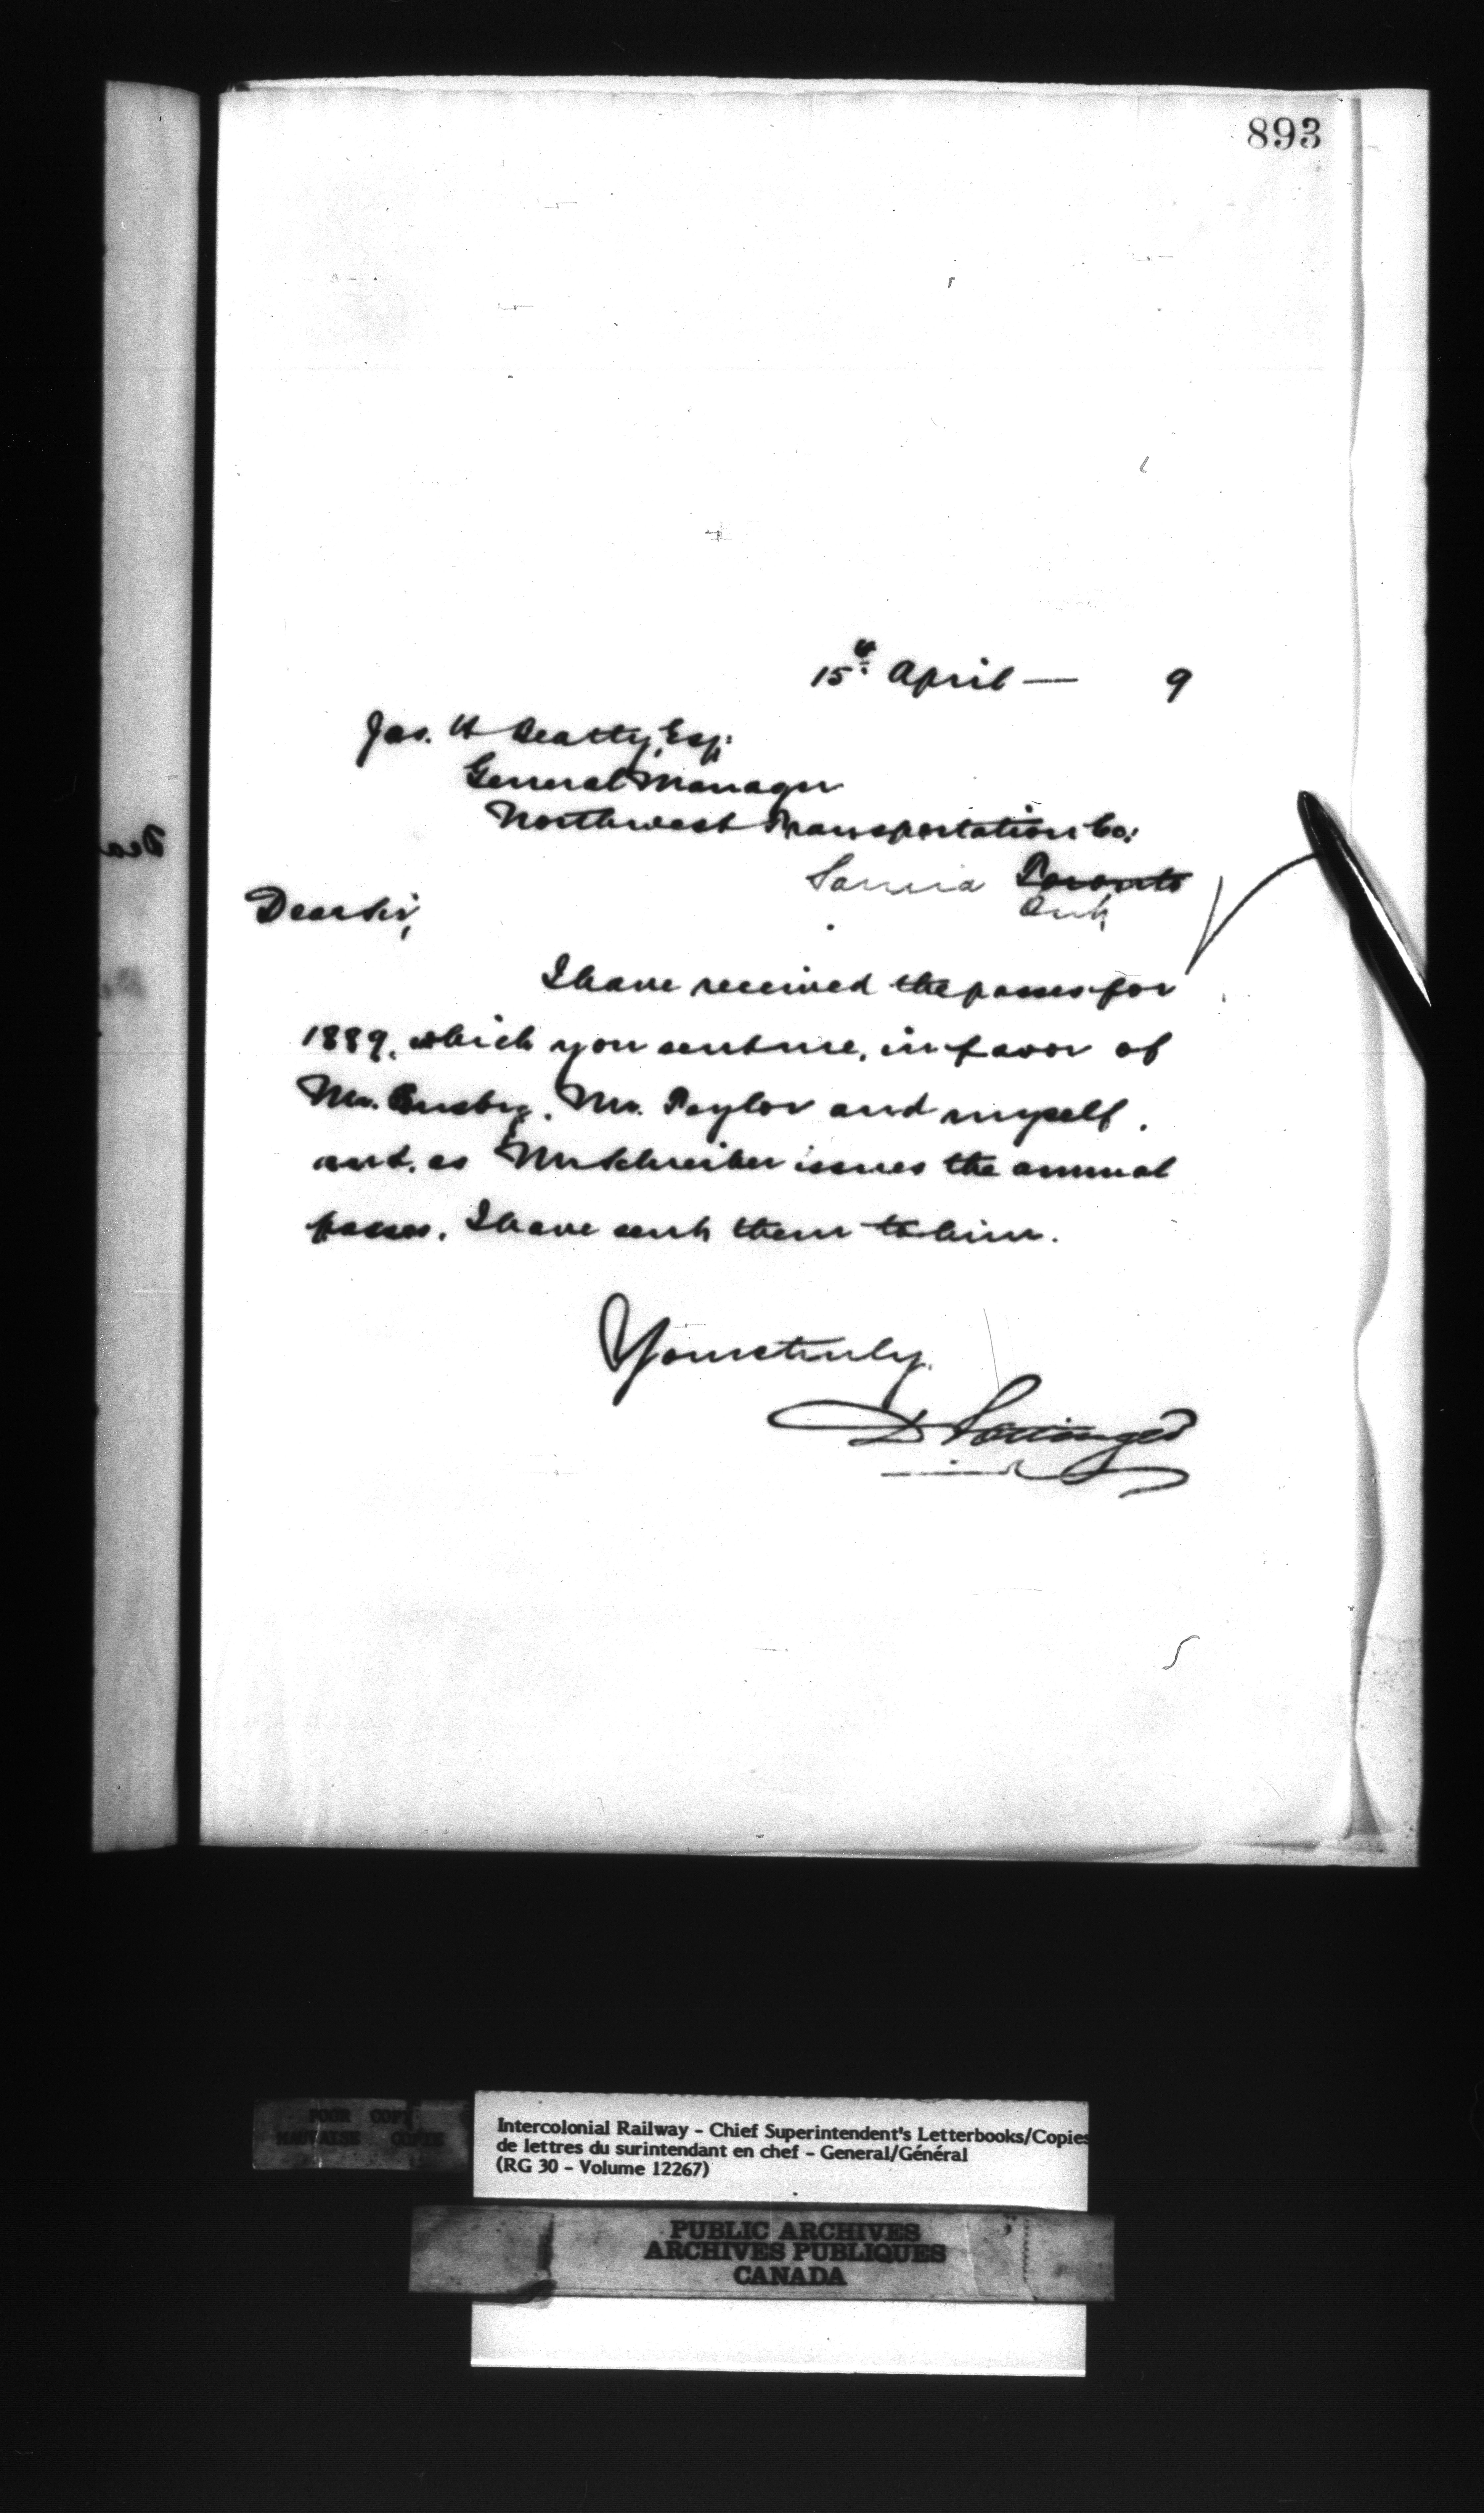 893
15th April — 9
Jas. H Beatty, Esq:
General Manager
Northwest Transportation Co:
Sarnia Toronto
Ont,
Dear Sir,
I have received the passes for
1889, which you sent me, in favor of
Mr. Busby, Mr. Taylor and myself,
and, as Mr Schreiber issues the annual
passes, I have sent them to him.
Yours truly,
D Pottinger
Dea
POOR COPY
MAUVAISE COPIE
Intercolonial Railway - Chief Superintendent's Letterbooks/Copies
de lettres du surintendant en chef - General/Général
(RG 30 - Volume 12267)
PUBLIC ARCHIVES
ARCHIVES PUBLIQUES
CANADA